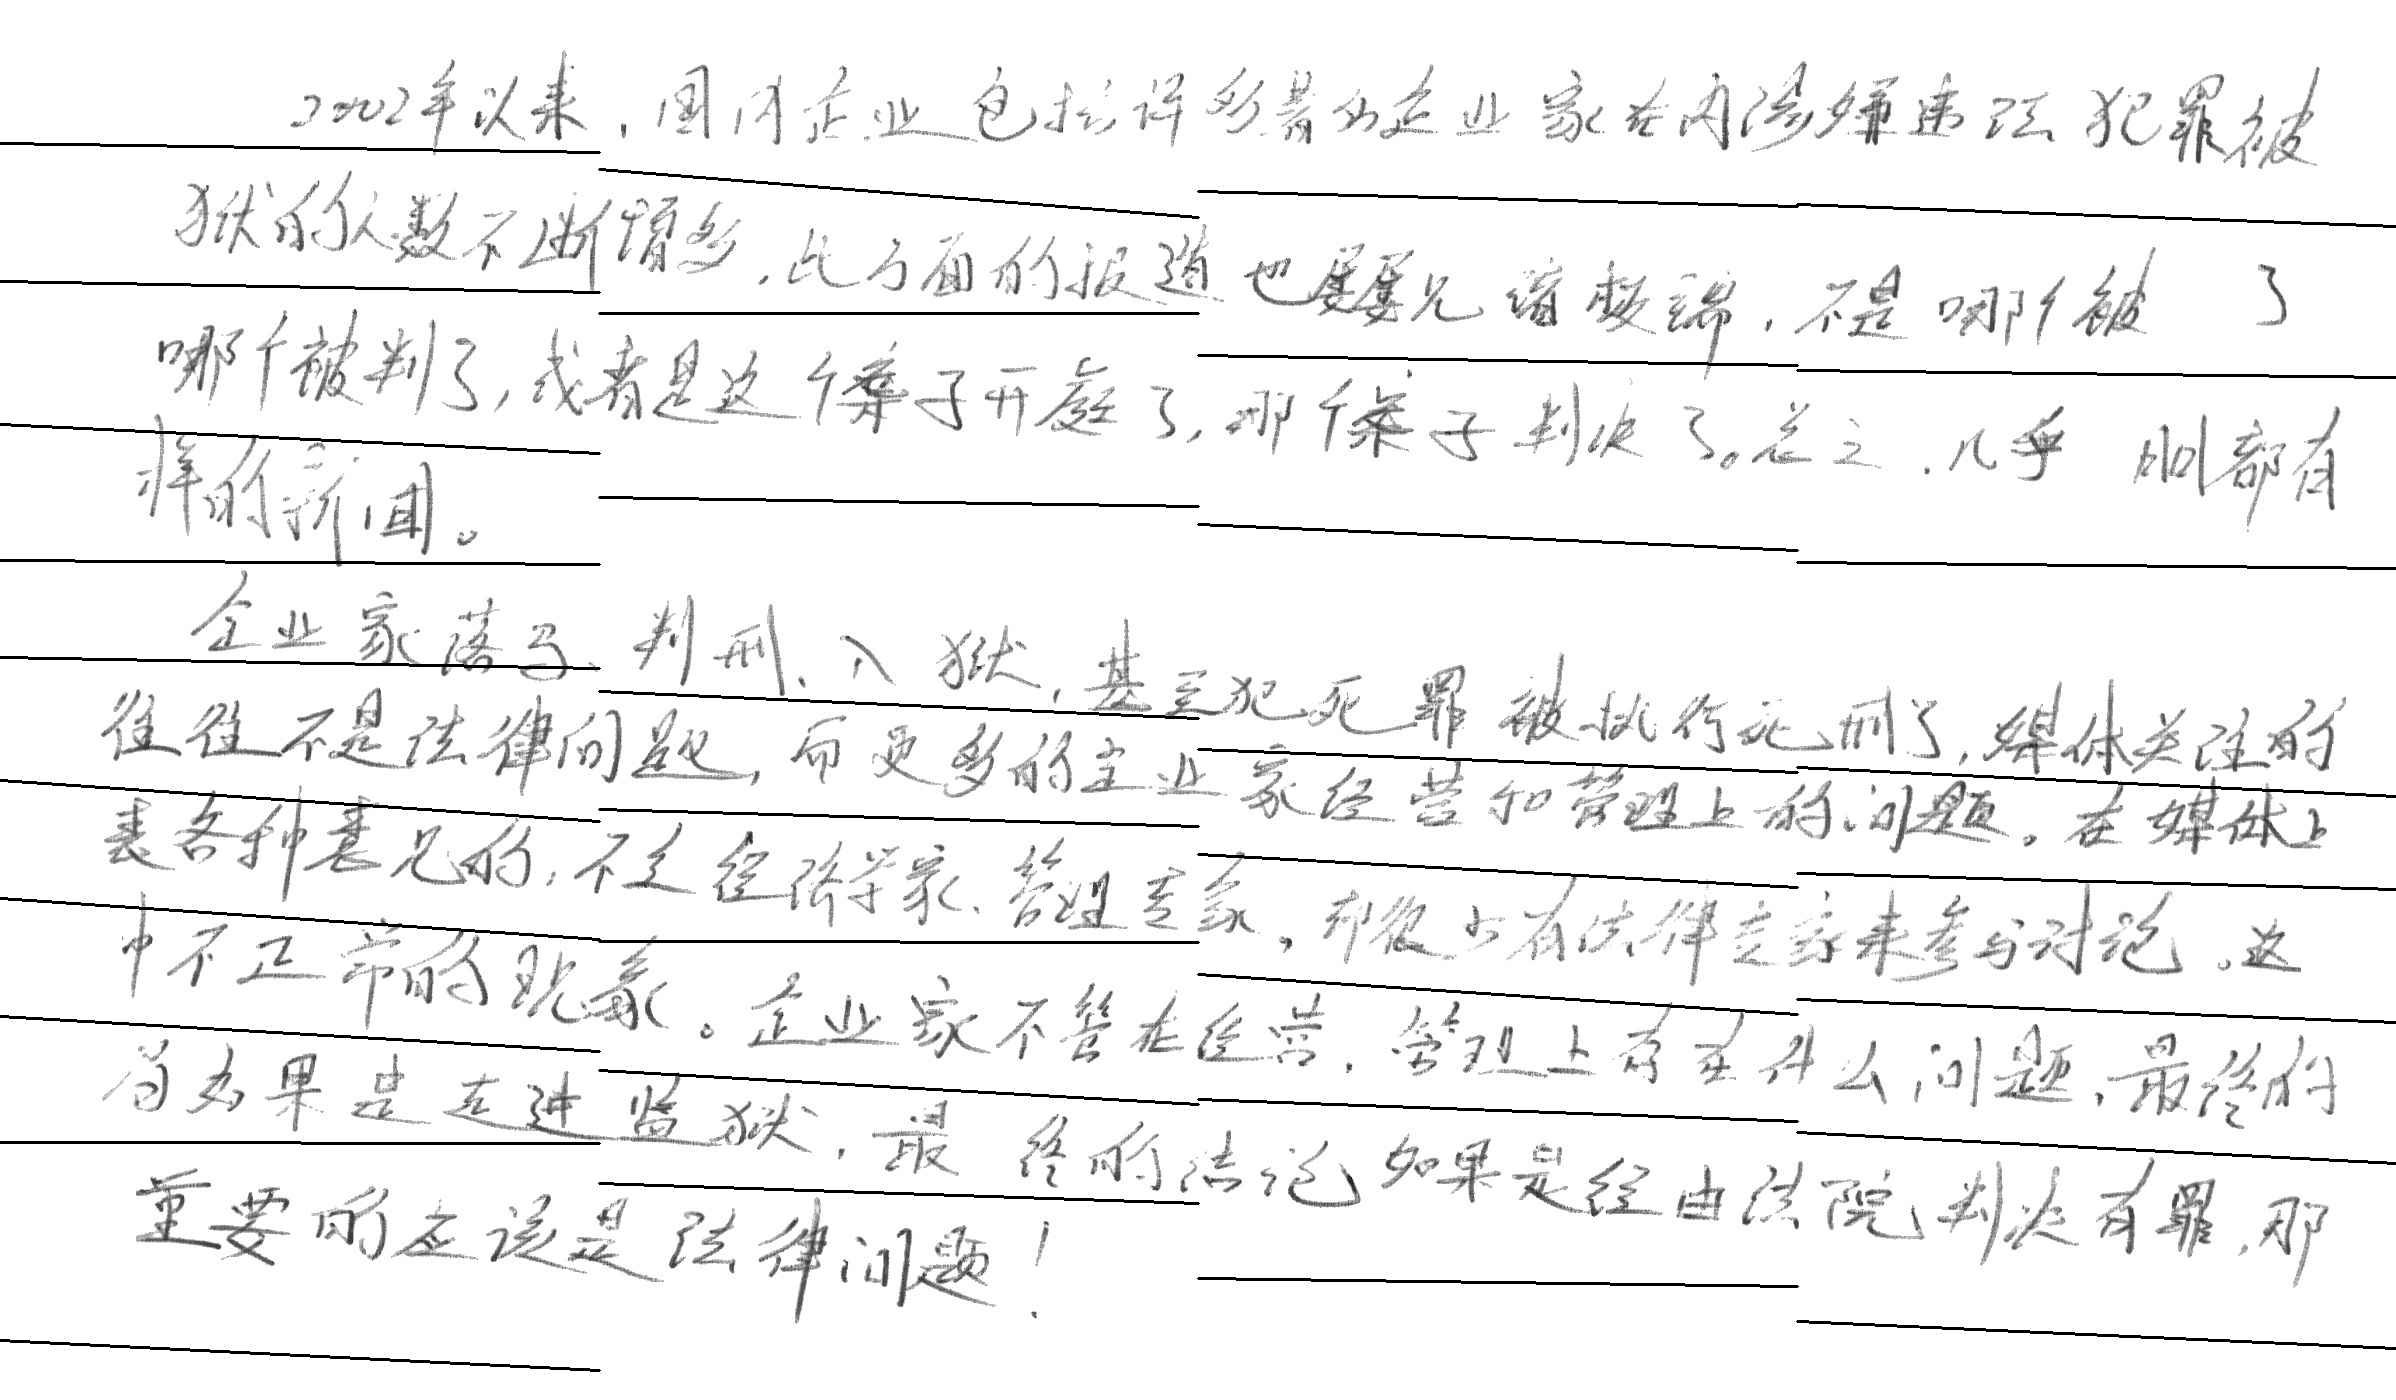 2002年以来，国内企业包括许多著名企业家在内涉嫌违法犯罪被
狱的人数不断增多，此方面的报道也屡屡见诸报端，不是哪个被 了
哪个被判了，或者是这个案子开庭了，那个案子判决了。总之，几乎 都有
样的新闻。
企业家落马、判刑、入狱，甚至犯死罪被执行死刑了，媒体关注的
往往不是法律问题，而更多的企业家经营和管理上的问题。在媒体上
表各种意见的，不是经济学家、管理专家，却很少有法律专家来参与讨论。这
中不正常的现象。企业家不管在经营，管理上存在什么问题，最终的
局如果是走进监狱，最终的结论如果是经由法院判决有罪，那
重要的应该是法律问题！